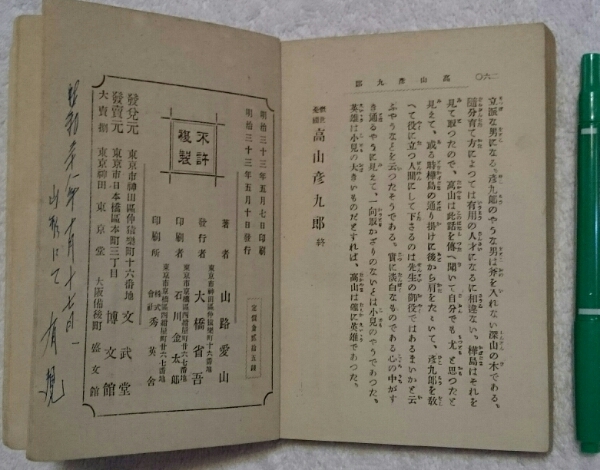 高山彦九郎
一六〇
立派な男になる。彦九郎のやうな男は斧を入れない深山の木である。
隨分育て方によつては有用の人才になるに相違ない。樺島はそれを
見て取つたので、高山は此話を傳へ聞いて自分でも尤と思つたと
見えて、或る時樺島の通り掛けに後から肩をたゝいて、彦九郎を敎
へて役に立つ人間にして下さるのは先生の御役ではあるまいかと云
ぶやうなことを云つたそうである。實に淡白なものである心の中がす
き通るやうに見えて、一向取かざりのないとは小見のやうであつた。
英雄は小見の大きいものだとすれば、高山は確に英雄であつた。
高山彦九郎 終
明治三十三年五月七日印刷
明治三十三年五月十日發行
不許
複製
定價金貳拾五錢
著者 山路愛山
東京市神田區仲猿樂町十六番地
發行者 大橋省吾
東京市京橋區西紺屋町廿六七番地
印刷者 石川金太郎
東京市京橋區西紺屋町廿六七番地
印刷所 株式會社 秀英舍
發兌元 東京市神田區仲猿樂町十六番地 文武堂
發賣元 東京市日本橋區本町三丁目 博文館
大賣捌 東京神田 東京堂 大阪備後町 盛文館